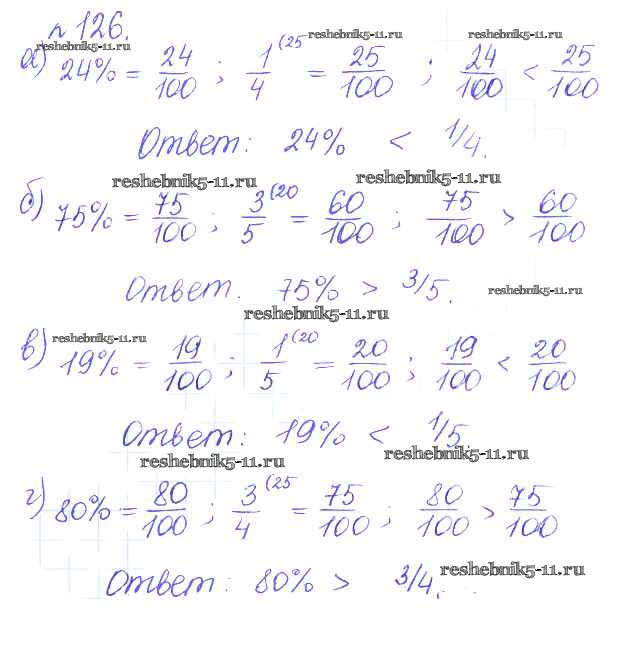 n 126.
reshebnik5-11.ru reshebnik5-11.ru
а) 24% = 24/100 ; 1/4 (25 = 25/100 ; 24/100 < 25/100
Ответ: 24% < 1/4.
reshebnik5-11.ru reshebnik5-11.ru
б) 75% = 75/100 ; 3/5 (20 = 60/100 ; 75/100 > 60/100
Ответ. 75% > 3/5.
reshebnik5-11.ru
reshebnik5-11.ru
reshebnik5-11.ru
в) 19% = 19/100 ; 1/5 (20 = 20/100 ; 19/100 < 20/100
Ответ: 19% < 1/5.
reshebnik5-11.ru reshebnik5-11.ru
г) 80% = 80/100 ; 3/4 (25 = 75/100 ; 80/100 > 75/100
Ответ: 80% > 3/4.
reshebnik5-11.ru